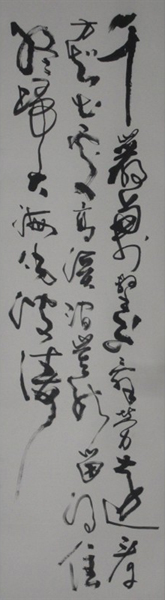 千巖萬壑不辭勞遠看
方知出處高溪澗豈能留得住
終歸大海作波濤